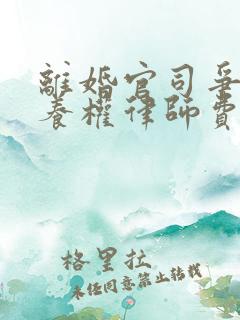 離婚官司爭
養權律師費
格里拉
未經同意禁止轉載